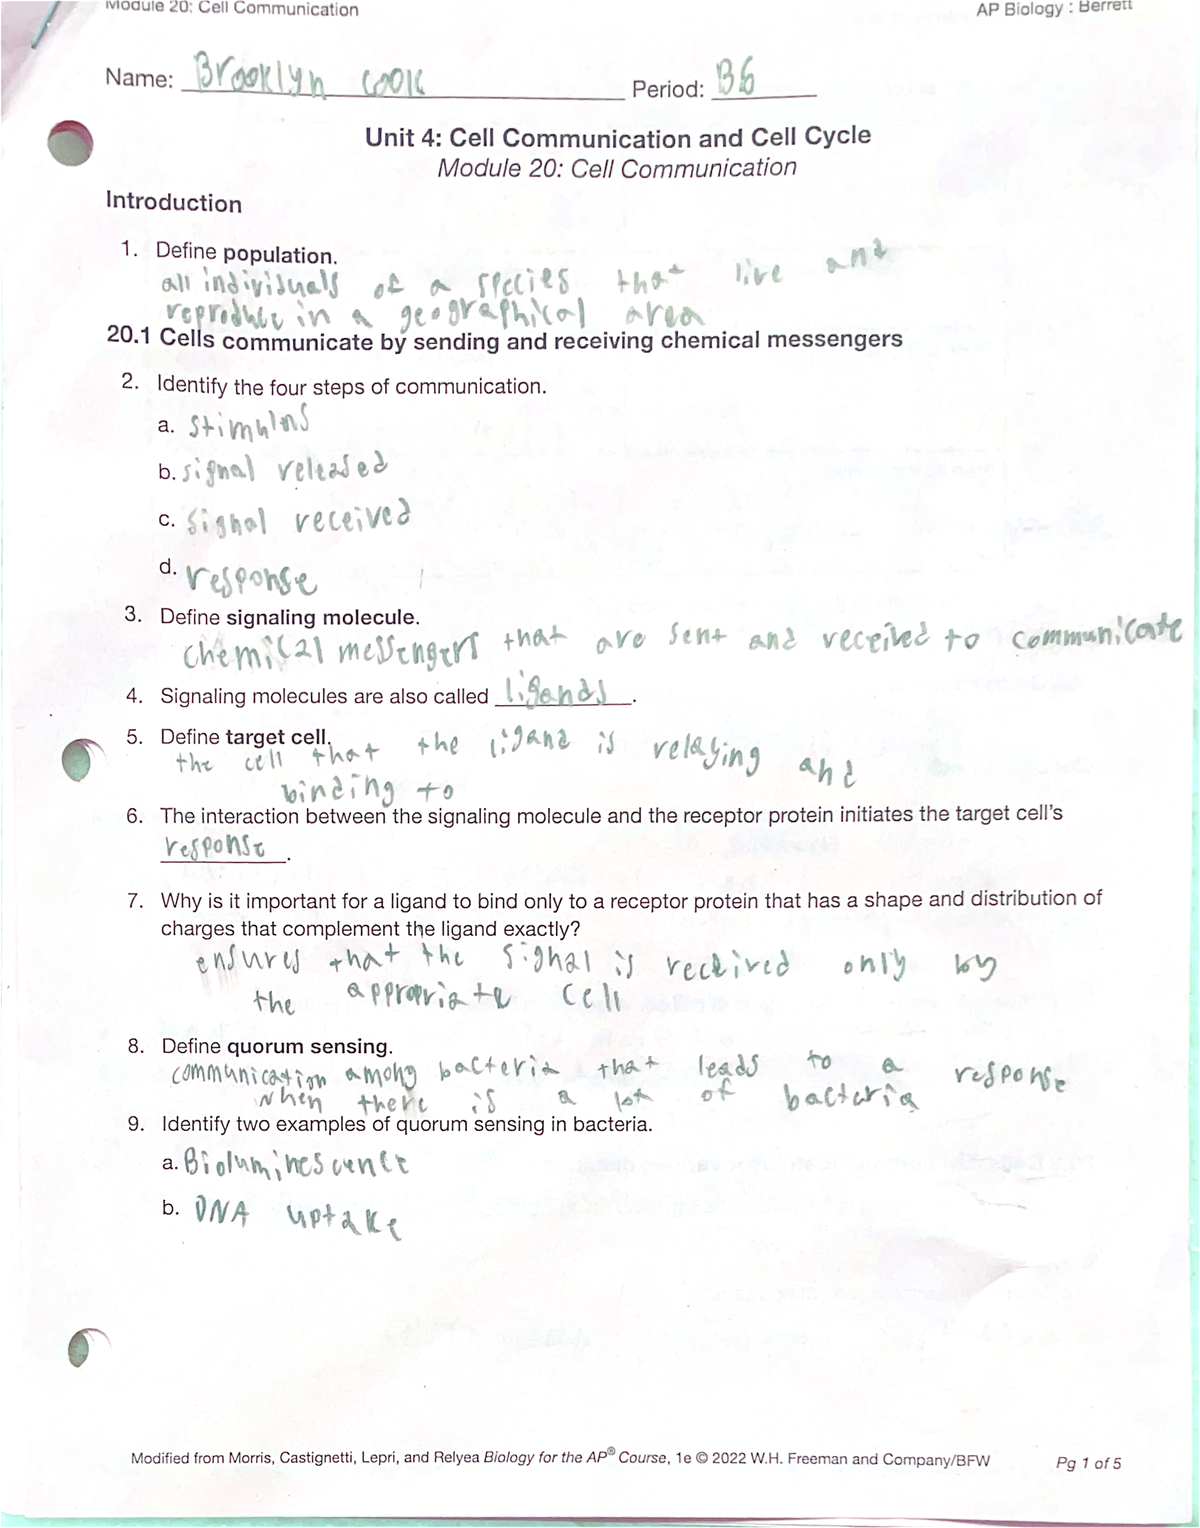 Module 20: Cell Communication
AP Biology : Berrett
Name: Brooklyn Cook
Period: B6
Unit 4: Cell Communication and Cell Cycle
Module 20: Cell Communication
Introduction
1. Define population.
all individuals of a species that live and
reproduce in a geographical area
20.1 Cells communicate by sending and receiving chemical messengers
2. Identify the four steps of communication.
a. Stimulus
b. signal released
c. signal received
d. response
3. Define signaling molecule.
chemical messengers that are sent and received to communicate
4. Signaling molecules are also called ligands.
5. Define target cell.
the cell that the ligand is relaying and
binding to
6. The interaction between the signaling molecule and the receptor protein initiates the target cell's
response.
7. Why is it important for a ligand to bind only to a receptor protein that has a shape and distribution of
charges that complement the ligand exactly?
ensures that the signal is received only by
the appropriate cell
8. Define quorum sensing.
communication among bacteria that leads to a response
when there is a lot of bacteria
9. Identify two examples of quorum sensing in bacteria.
a. Bioluminescence
b. DNA uptake
Modified from Morris, Castignetti, Lepri, and Relyea Biology for the AP® Course, 1e © 2022 W.H. Freeman and Company/BFW
Pg 1 of 5